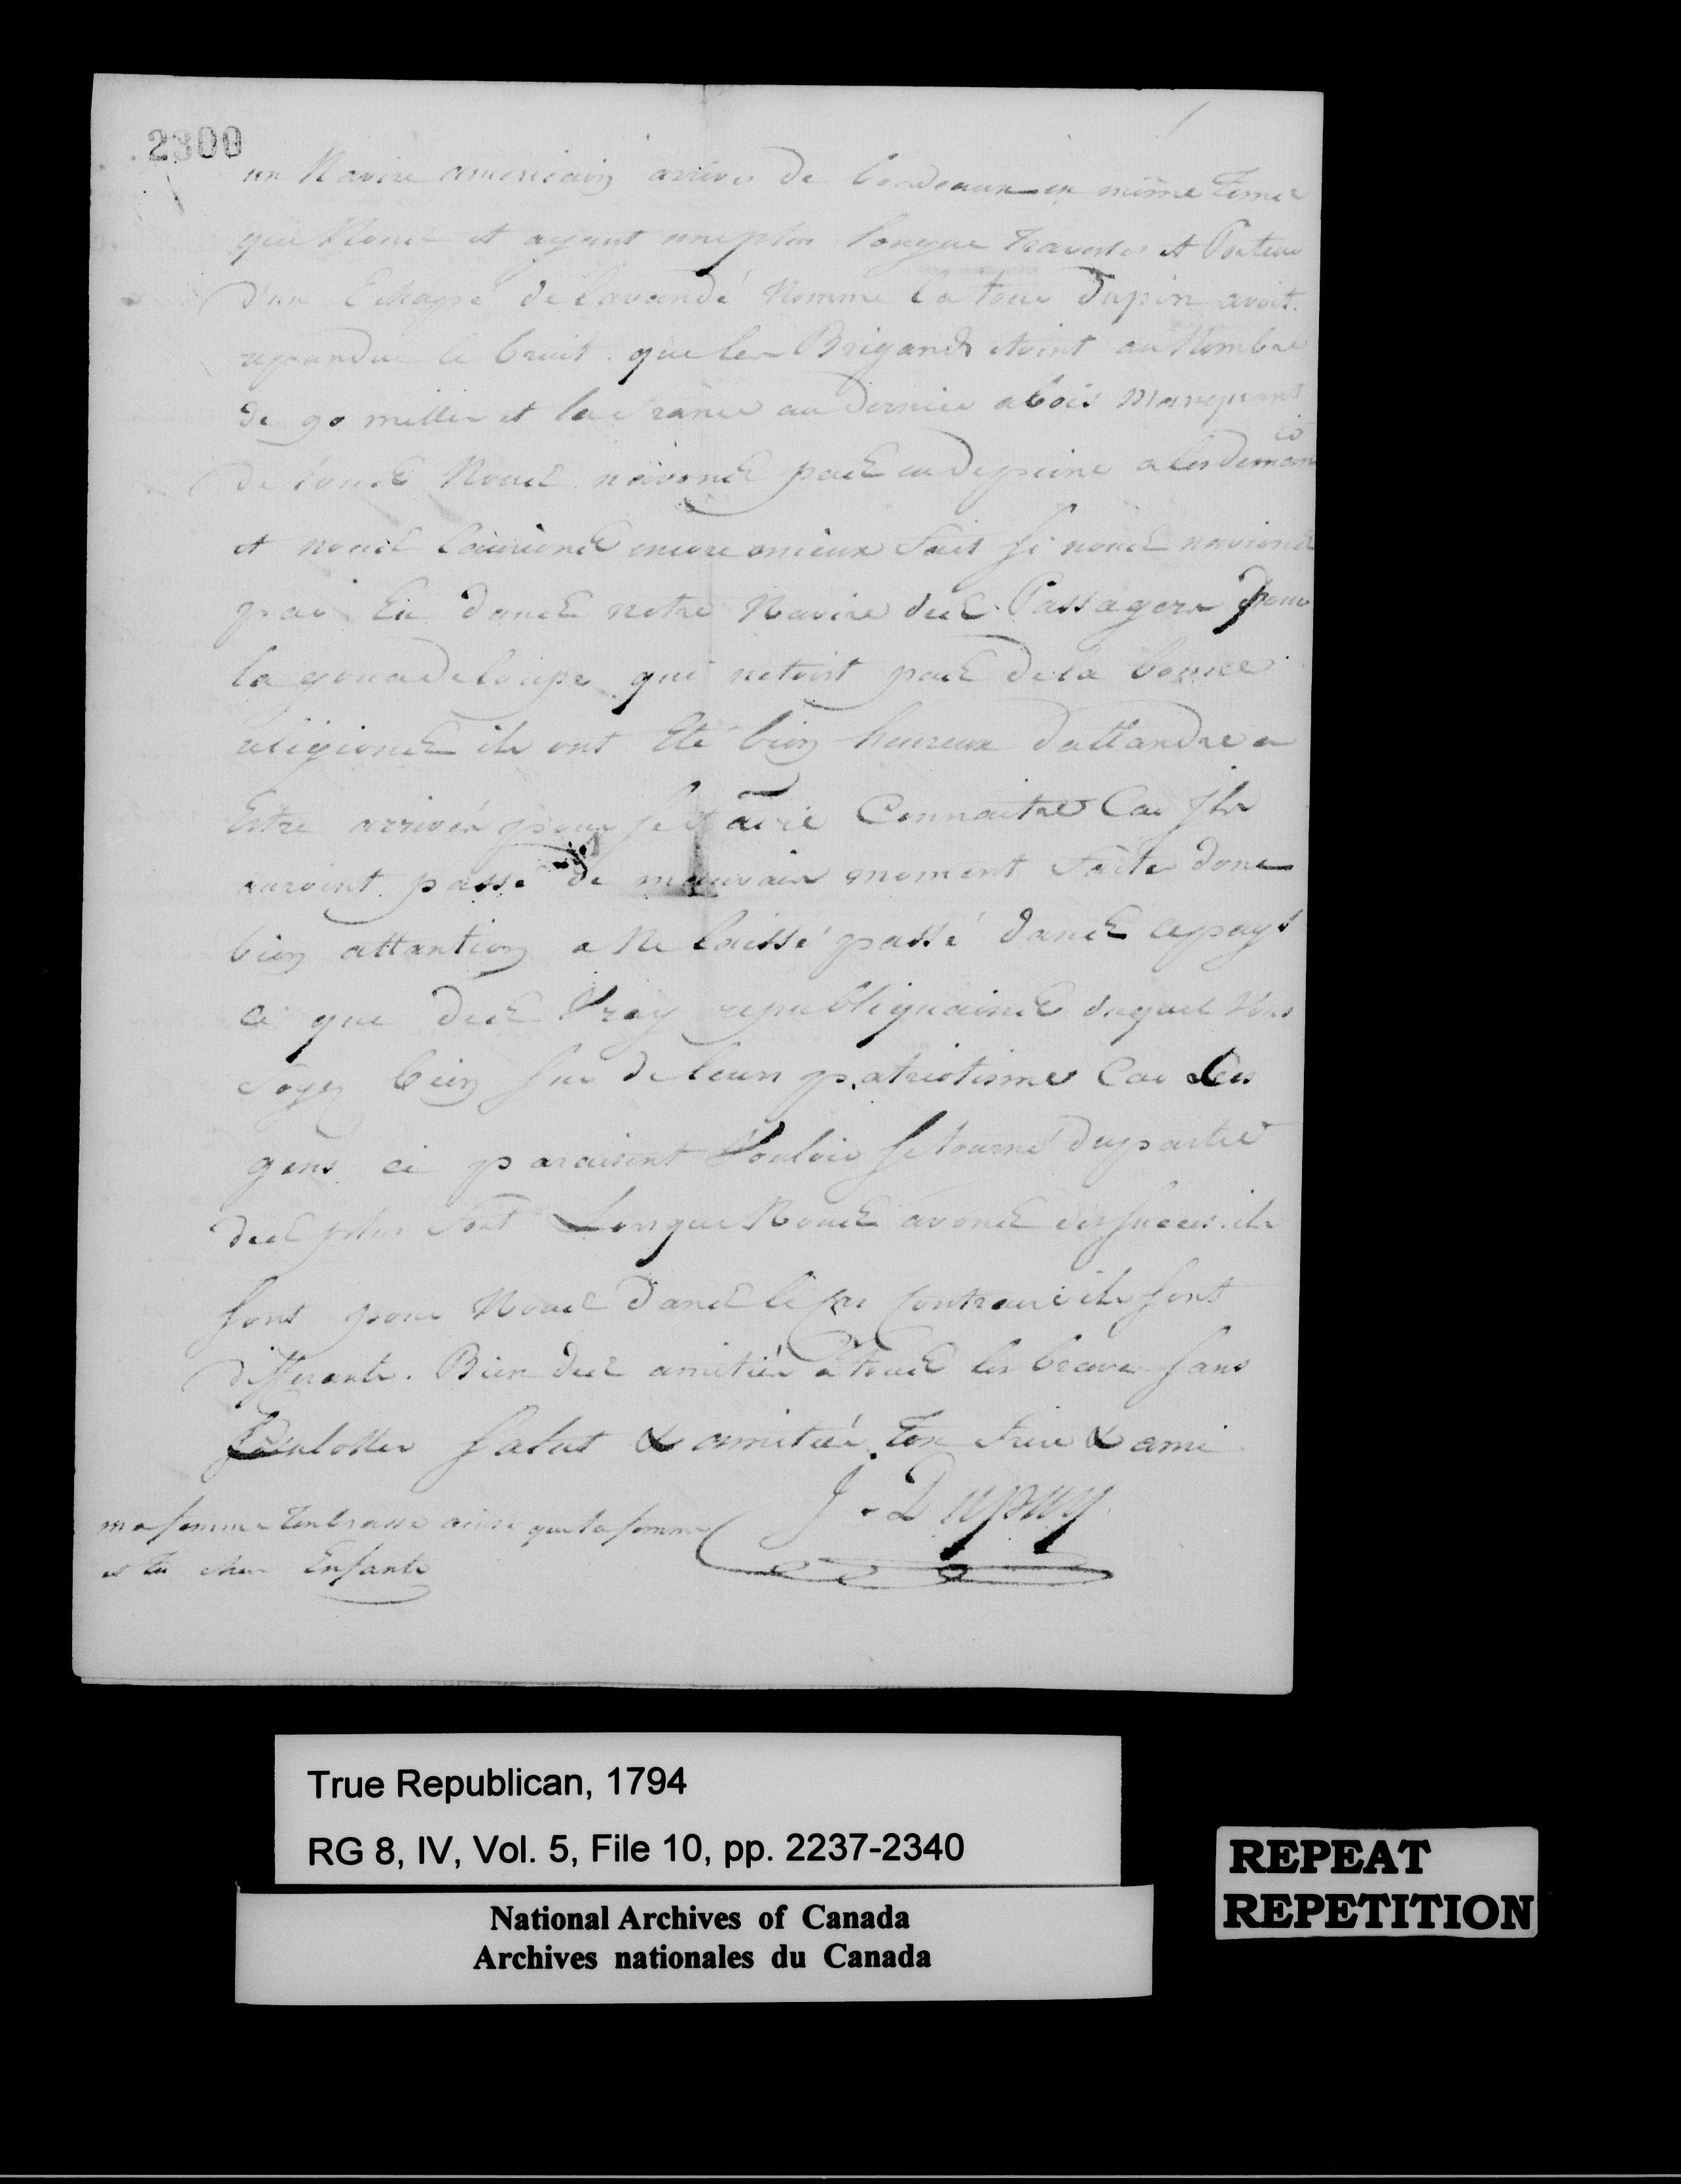 2300
un Navire americain arrivé de bordeaux en même Temes
que Nouce et ayant une plus longue traversée et Porteur
d'un Echapé de lavandé Nommé la tour dupin avoit
repandue le bruit que les Brigands étoint au Nombre
de 90 milles et la france au dernier abois Manquant
de tous Nouce navonce pas eu de peine a les deman
et nouce lauvionce encore mieux fait si nouce navionce
pas Eu dance notre Navire dece Passagers pour
la gouadeloupe qui netoint pace de la bonne
religionce ils ont Eté bien heureux dattandre a
Estre arrivés pour se faire Connaitre Car ils
auroint passé de mauvais moment faite donc
bien attantion a Ne laissé passé dance ce pays
ci que dece Vray republiquaince duquel vous
soyez bien sur de leurs patriotisme Car Les
gens ci paraisent Vouloir se tourné du partie
dece plus fort Lorsque Nouce avonce des succes ils
sont pour Nouce dance le cas contraire ils sont
differants. Bien dece amitiés a touce les braves sans
Culottes salut & amitié Ton frere & ami
J. Dupuy
ma femme tenbrasse ainsi que ta femme
et tes cher Enfants
True Republican, 1794
RG 8, IV, Vol. 5, File 10, pp. 2237-2340
National Archives of Canada
Archives nationales du Canada
REPEAT
REPETITION